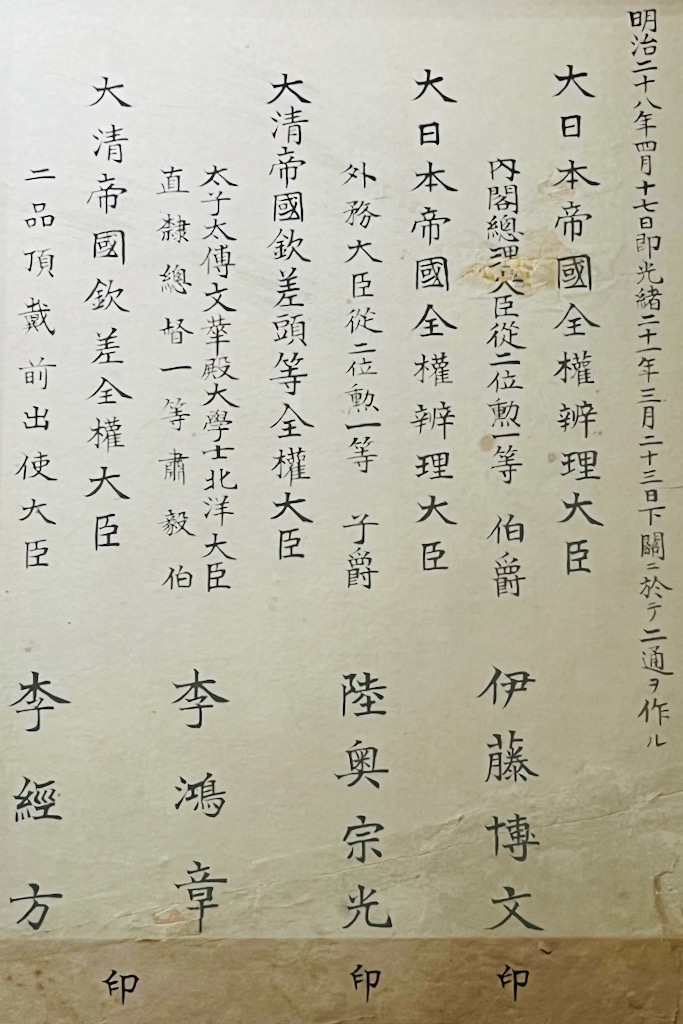 明治二十八年四月十七日即光緒二十一年三月二十三日下關ニ於テ二通ヲ作ル
大日本帝國全權辨理大臣
內閣總理大臣從二位勲一等 伯爵 伊藤博文 印
大日本帝國全權辨理大臣
外務大臣從二位勲一等 子爵 陸奥宗光 印
大清帝國欽差頭等全權大臣
太子太傅文華殿大學士北洋大臣
直隸總督一等肅毅伯 李鴻章
大清帝國欽差全權大臣 印
二品頂戴前出使大臣 李經方